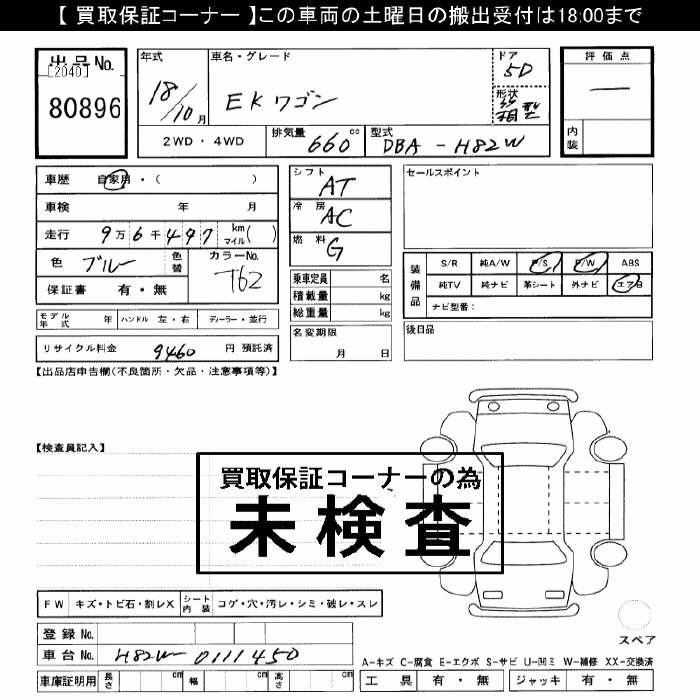 【 買取保証コーナー 】この車両の土曜日の搬出受付は18:00まで
出品No.
[2040]
80896
年式
18/10月
車名・グレード
EKワゴン
ドア
5D
形状
箱型
評価点
一
内装
2WD・4WD
排気量 660 cc
型式 DBA-H82W
車歴 自家用・( )
車検 年 月
走行 9万6千497 km マイル( )
色 ブルー 色替
カラーNo. T62
保証書 有・無
シフト AT
冷房 AC
燃料 G
乗車定員 名
積載量 kg
総重量 kg
セールスポイント
装備品
S/R 純A/W P/S P/W ABS
純TV 純ナビ 革シート 外ナビ エアB
ナビ型番:
モデル年式 年 ハンドル 左・右 ディーラー・並行
名変期限 月 日
後日品
リサイクル料金 9460 円 預託済
【出品店申告欄(不良箇所・欠品・注意事項等)】
【検査員記入】
買取保証コーナーの為
未検査
FW キズ・トビ石・割レX シート内装 コゲ・穴・汚レ・シミ・破レ・スレ
登録No.
車台No. H82W-0111450
スペア
A-キズ C-腐食 E-エクボ S-サビ U-凹ミ W-補修 XX-交換済
車庫証明用 長さ cm 幅 cm 高さ cm
工具 有・無 ジャッキ 有・無